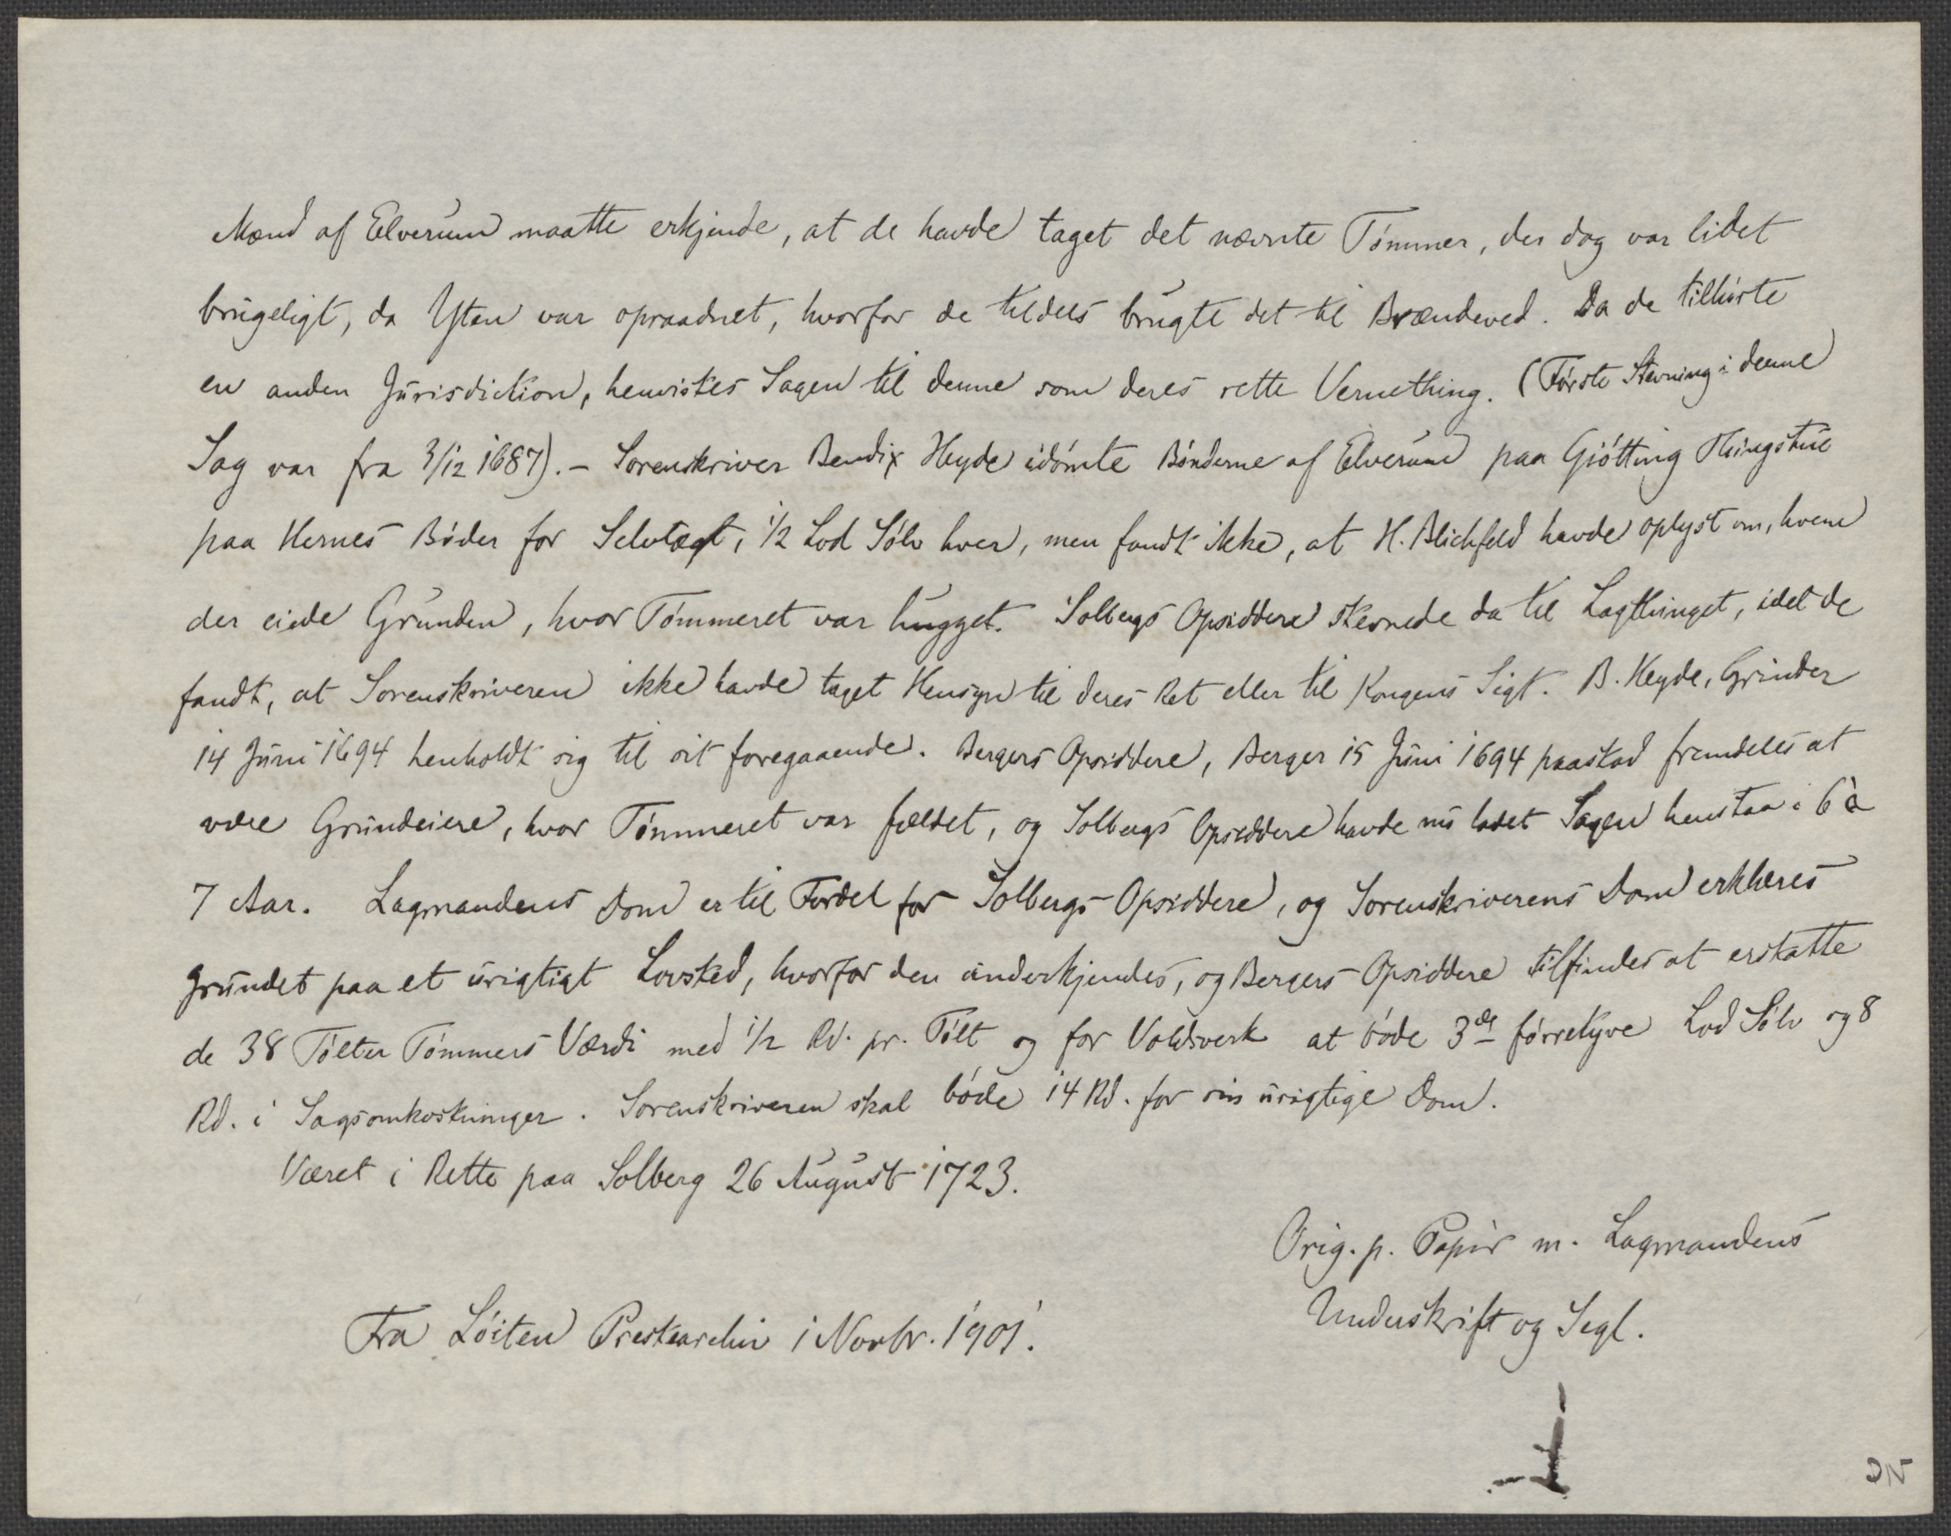 Mænd af Elverum maatte erkjende, at de havde taget det nævnte Tømmer, der dog var lidet
brugeligt, da Yten var opraadnet, hvorfor de tildels brugte det til Brændeved. Da de tilhørte
en anden Jurisdiction, henvistes Sagen til denne som deres rette Vernething. (Første Stevning i denne
Sag var fra 3/12 1687). – Sorenskriver Bendix Heyde idømte Bønderne af Elverum paa Gjøtting Thingstue
paa Hernes Bøder for Selvtægt, 1/2 Lod Sølv hver, men fandt ikke, at H. Blichfeld havde oplyst om, hvem
der eiede Grunden, hvor Tømmeret var hugget. Solbergs Opsiddere stevnede da til Lagthinget, idet de
fandt, at Sorenskriveren ikke havde taget Hensyn til deres Ret eller til Kongens Sigt. B. Heyde, Grinder
14 Juni 1694 henholdt sig til sit foregaaende. Bergers Opsiddere, Berger 15 Juni 1694 paastod fremdeles at
være Grundeiere, hvor Tømmeret var fældet, og Solbergs Opsiddere havde nu ladet Sagen henstaa i 6 à
7 Aar. Lagmandens Dom er til Fordel for Solbergs Opsiddere, og Sorenskriverens Dom erklæres
grundet paa et urigtigt Lovsted, hvorfor den underkjendes, og Bergers Opsiddere tilfindes at erstatte
de 38 Tølter Tømmers Værdi med 1/2 Rd. pr. Tølt og for Voldsverk at bøde 3de førretyve Lod Sølv og 8
Rd. i Sagsomkostninger. Sorenskriveren skal bøde 14 Rd. for sin urigtige Dom.
Været i Rette paa Solberg 26 August 1723.
Orig. p. Papir m. Lagmandens
Underskrift og Segl.
Fra Løiten Prestearchiv i Novbr. 1901.
DN